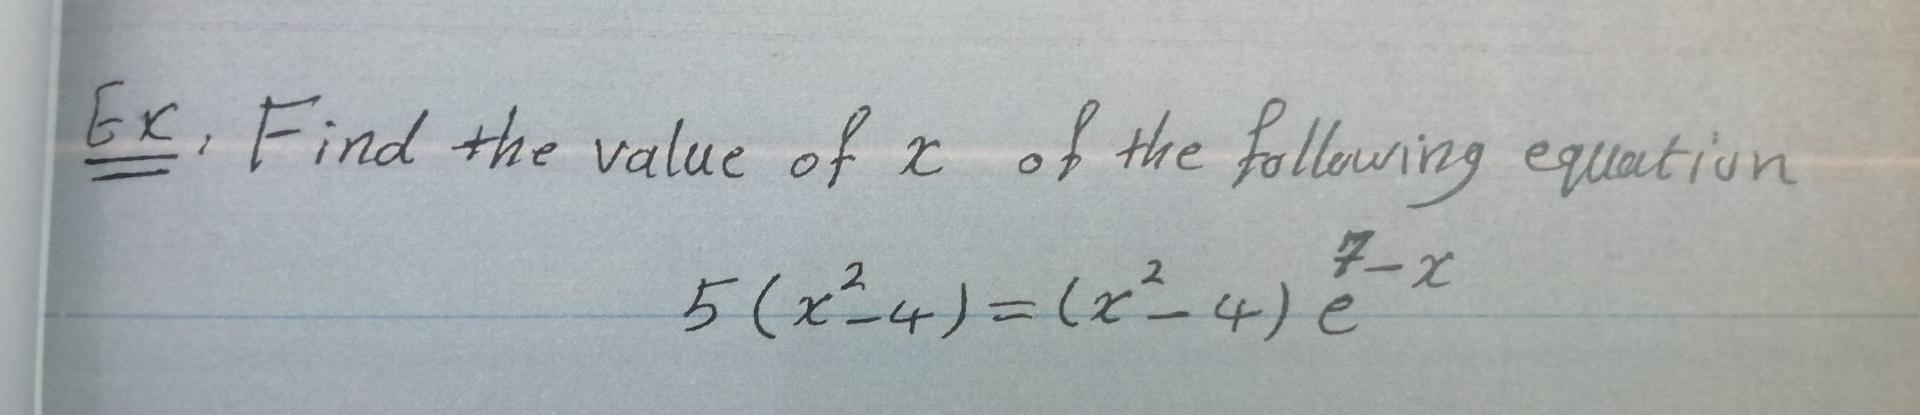 Ex. Find the value of x of the following equation
5(x²-4)=(x²-4)e⁷⁻ˣ